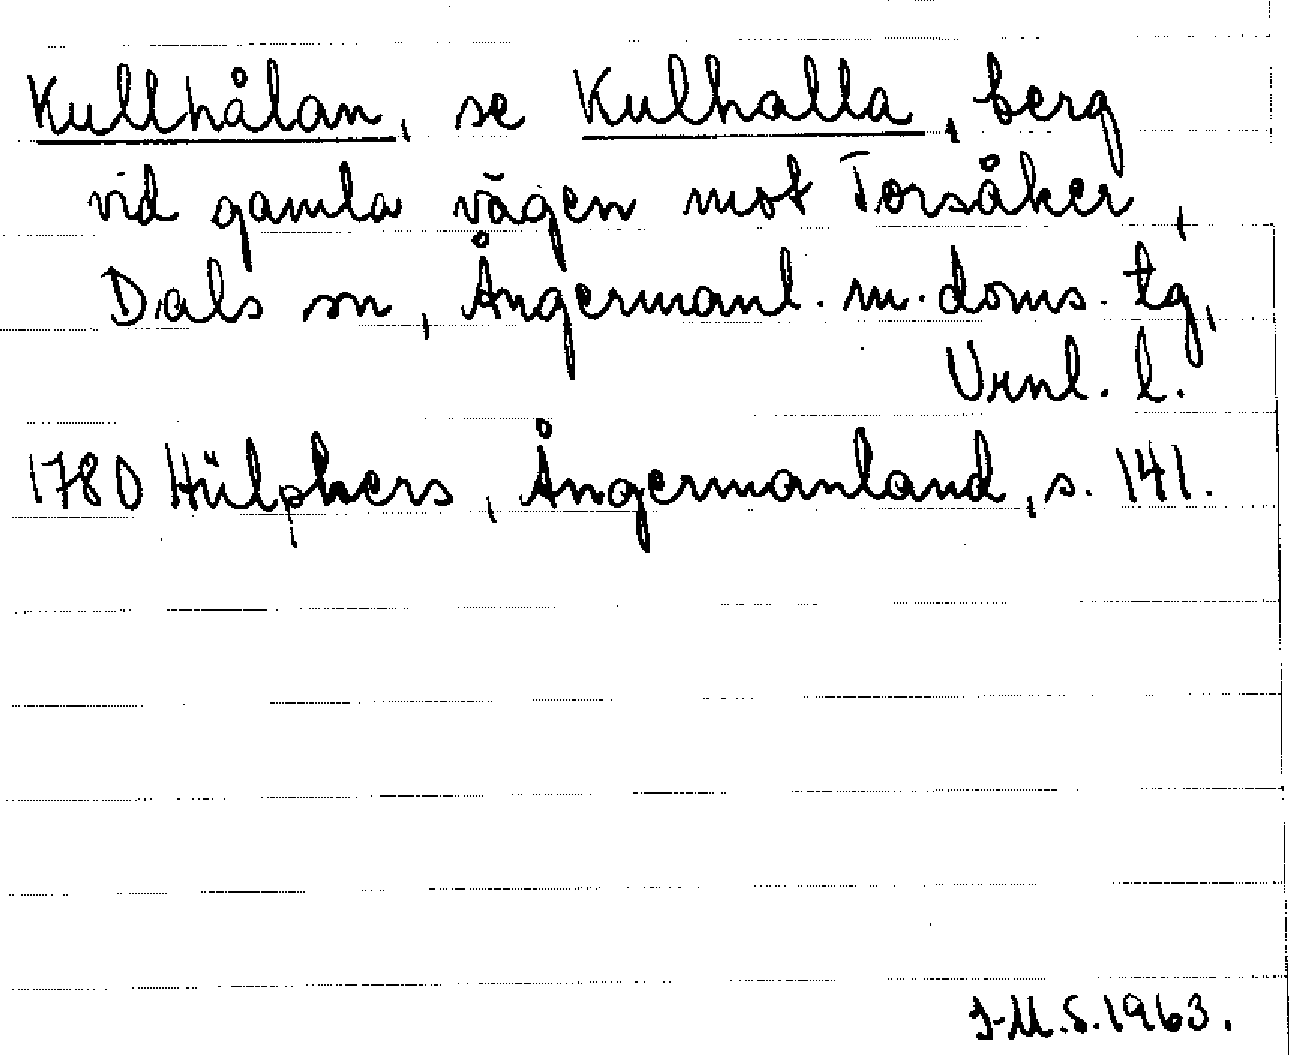 Kullhålan, se Kulhalla, berg
vid gamla vägen mot Torsåker,
Dals sn, Ångermanl. m. doms. tg,
Vrnl. l.
1780 Hülphers, Ångermanland, s. 141.
I-M.S. 1963.